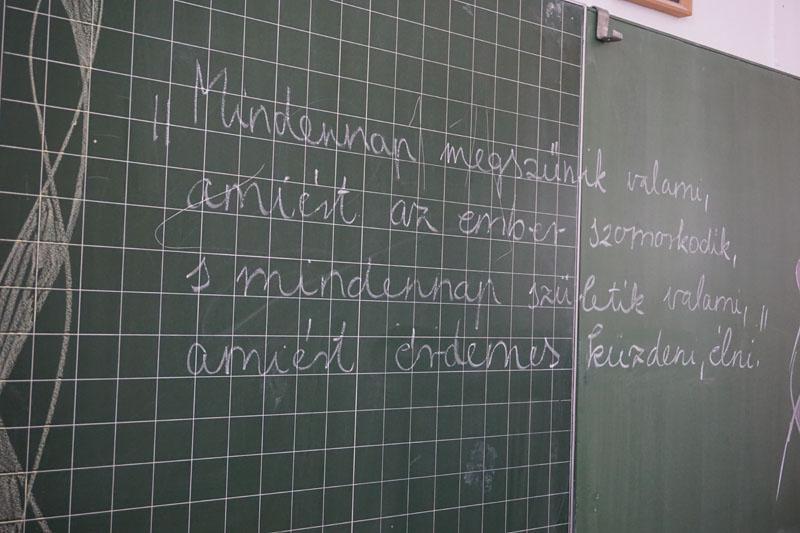 „Mindennap megszűnik valami,
amiért az ember szomorkodik,
s mindennap születik valami,"
amiért érdemes küzdeni, élni.